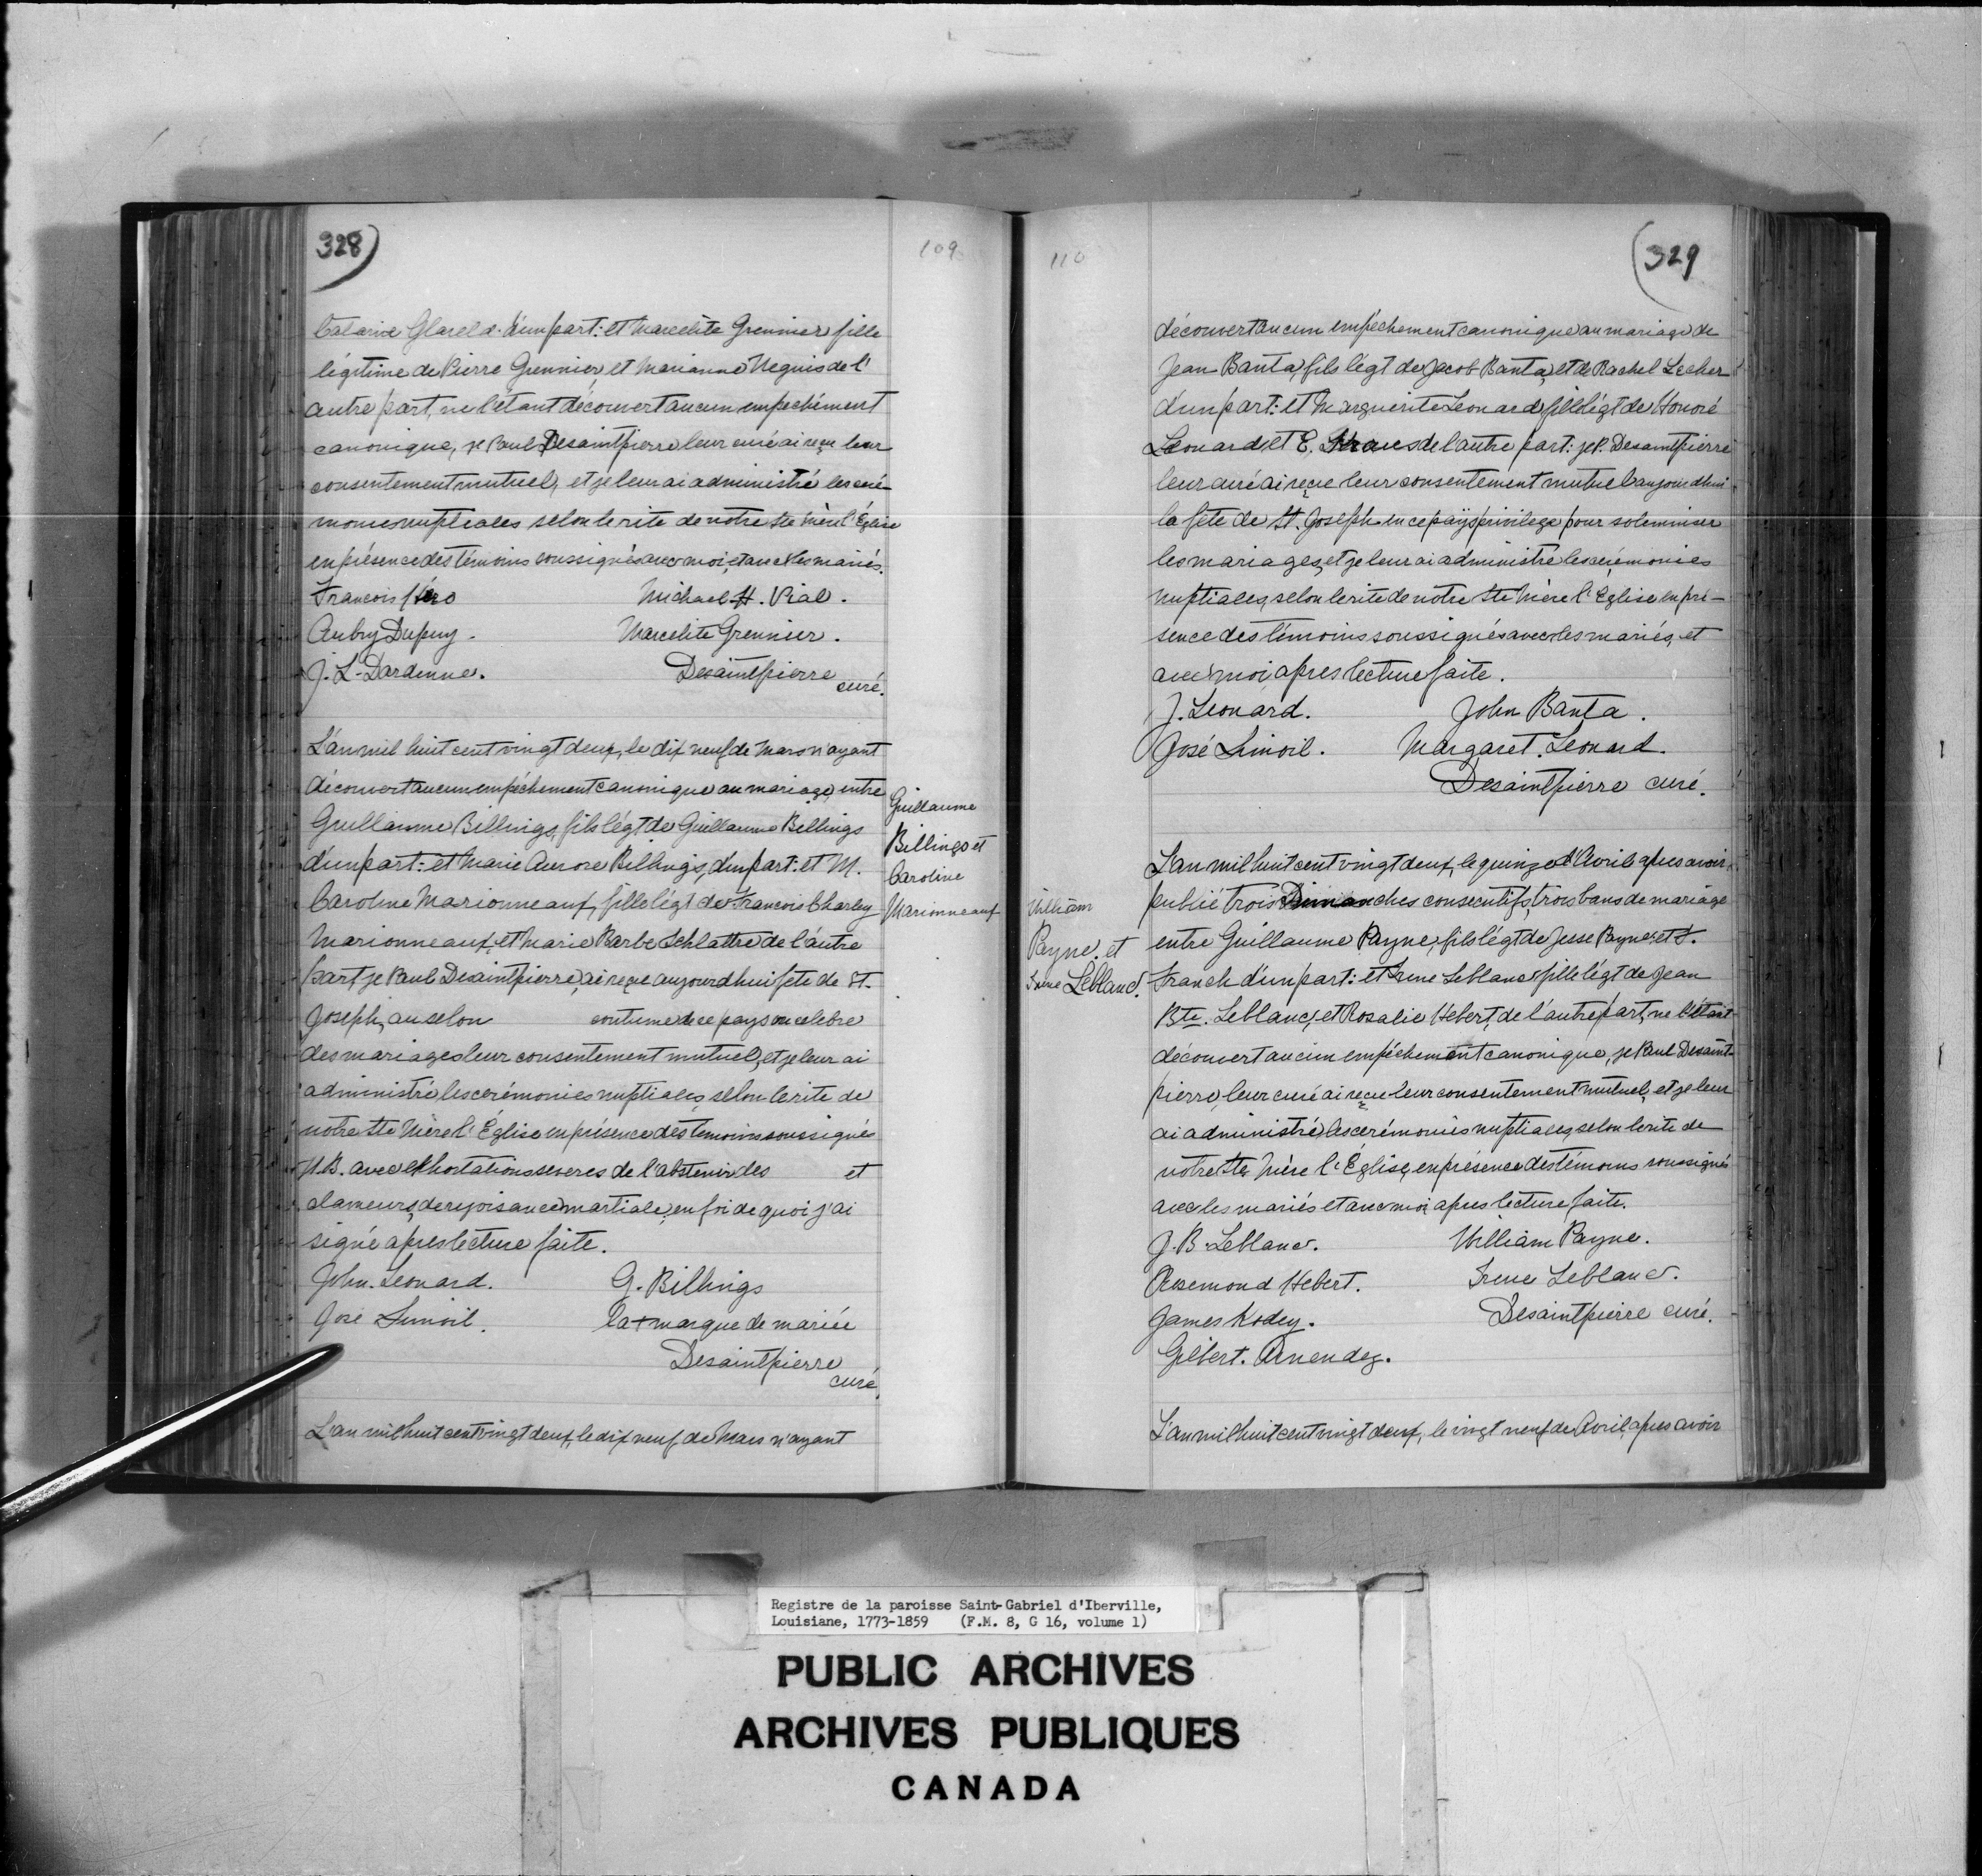 328)
109
Catarine Glareld. d'un part: et Marcelite Grennier fille
légitime de Pierre Grennier et Marianne Neguis de l'
autre part, ne l'étant découvert aucun empechément
canonique, je Paul Desaintpierre leur curé ai reçu leur
consentement mutuel, et je leur ai administré les ceré-
monies nuptiales selon le rite de notre Ste Mère l'Église
en présence des témoins soussignés avec moi, et avec les mariés.
Francois
Michael H. Vial.
Aubry Dupuy.
Marcelite Grennier.
J. L. Dardenne.
Desaintpierre
curé.
L'an mil huit cent vingt deux, le dix neuf de Mars n'ayant
découvert aucun empéchement canonique au mariage, entre
Guillaume Billings, fils légt de Guillaume Billings
d'un part: et Marie Aurore Billings, d'un part: et M.
Caroline Marionneaux, fille légt de Francois Charley
Marionneaux, et Marie Barbe Schlattre de l'autre
part je Paul Desaintpierre, ai reçue aujourdhui fete de St.
Joseph, au selon coutume de ce pays on celebre
des mariages leur consentement mutuel, et je leur ai
administré les cerémonies nuptiales, selon le rite de
notre Ste Mère l'Église en présence des temoins soussignés
N.B. avec exhortations severes de l'abstenir des et
clameurs, de rejoisance martiale, en foi de quoi j'ai
signé apres lecture faite.
John. Leonard.
G. Billings
José Limoil.
la + marque de mariée
Desaintpierre
curé.
L'an mil huit cent vingt deux, le dix neuf de Mars n'ayant
Guillaume
Billings et
Caroline
Marionneaux
110
(329
découvert aucun empéchement canonique au mariage de
Jean Banta, fils légt de Jacob Banta, et de Rachel Lecher
d'un part: et Marguerite Leonard fille légt de Honoré
Leonard et E. de l'autre part: je P. Desaintpierre
leur curé ai reçue leur consentement mutuel aujourdhui
la fete de St. Joseph en ce pays privilege pour solemniser
les mariages, et je leur ai administré les cerémonies
nuptiales, selon le rite de notre Ste Mère l'Église en pré-
sence des témoins soussignés avec les mariés, et
avec moi, apres lecture faite.
J. Leonard.
John Banta.
José Limoil.
Margaret. Leonard.
Desaintpierre curé.
L'an mil huit cent vingt deux, le quinze d'Avril apres avoir
publié trois Dimanches consecutifs, trois bans de mariage
entre Guillaume Payne, fils légt de Jesse Payne et S.
Franck d'un part: et Irene Leblanc fille légt de Jean
Bte. Leblanc, et Rosalie Hebert, de l'autre part, ne l'étant
découvert aucun empéchement canonique, je Paul Desaint-
pierre, leur curé ai reçue leur consentement mutuel, et je leur
ai administré, les cerémonies nuptiales, selon le rite de
notre Ste Mère l'Église, en présence des témoins soussignés
avec les mariés et avec moi apres lecture faite.
J. B. Leblanc.
William Payne.
Rosemond Hebert.
Irene Leblanc.
James Kodey.
Desaintpierre curé.
Gilbert. Arnendez.
L'an mil huit cent vingt deux, le vingt neuf de Avril, apres avoir
William
Payne. et
Irene Leblanc.
Registre de la paroisse Saint-Gabriel d'Iberville,
Louisiane, 1773-1859 (F.M. 8, G 16, volume 1)
PUBLIC ARCHIVES
ARCHIVES PUBLIQUES
CANADA